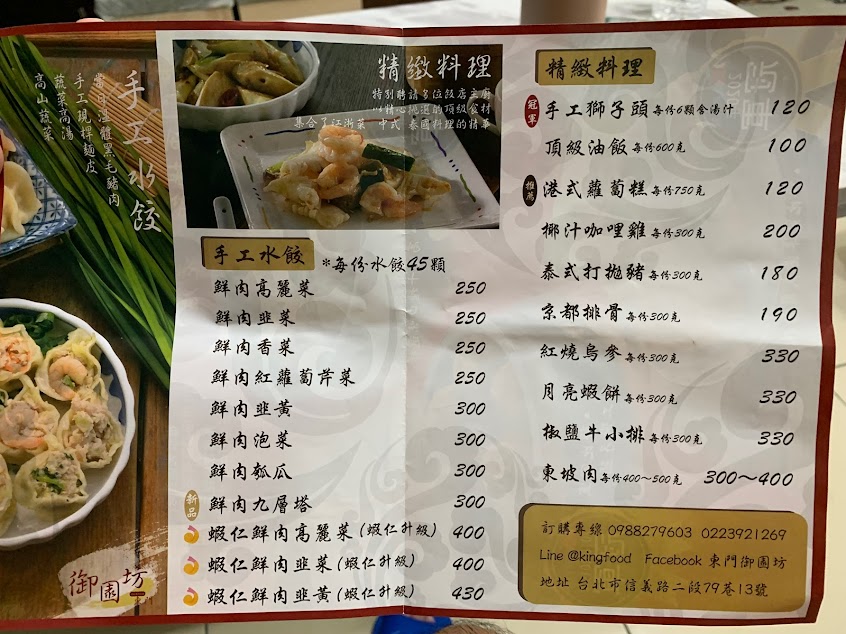 手工水餃
常見溫體黑毛豬肉
手工現桿麵皮
蔬菜高湯
高山蔬菜
御園坊
精緻料理
特別聘請多位飯店主廚
以精心挑選的頂級食材
集合了江浙菜 中式 泰國料理的精華
手工水餃 *每份水餃45顆
鮮肉高麗菜 250
鮮肉韭菜 250
鮮肉香菜 250
鮮肉紅蘿蔔芹菜 250
鮮肉韭黃 300
鮮肉泡菜 300
鮮肉瓠瓜 300
新品 鮮肉九層塔 300
蝦仁鮮肉高麗菜(蝦仁升級) 400
蝦仁鮮肉韭菜(蝦仁升級) 400
蝦仁鮮肉韭黃(蝦仁升級) 430
精緻料理
冠軍 手工獅子頭 每份6顆含湯汁 120
頂級油飯 每份600克 100
推薦 港式蘿蔔糕 每份750克 120
椰汁咖哩雞 每份300克 200
泰式打拋豬 每份300克 180
京都排骨 每份300克 190
紅燒烏參 每份300克 330
月亮蝦餅 每份300克 330
椒鹽牛小排 每份300克 330
東坡肉 每份400~500克 300~400
訂購專線 0988279603 0223921269
Line @kingfood Facebook 東門御園坊
地址 台北市信義路二段79巷13號